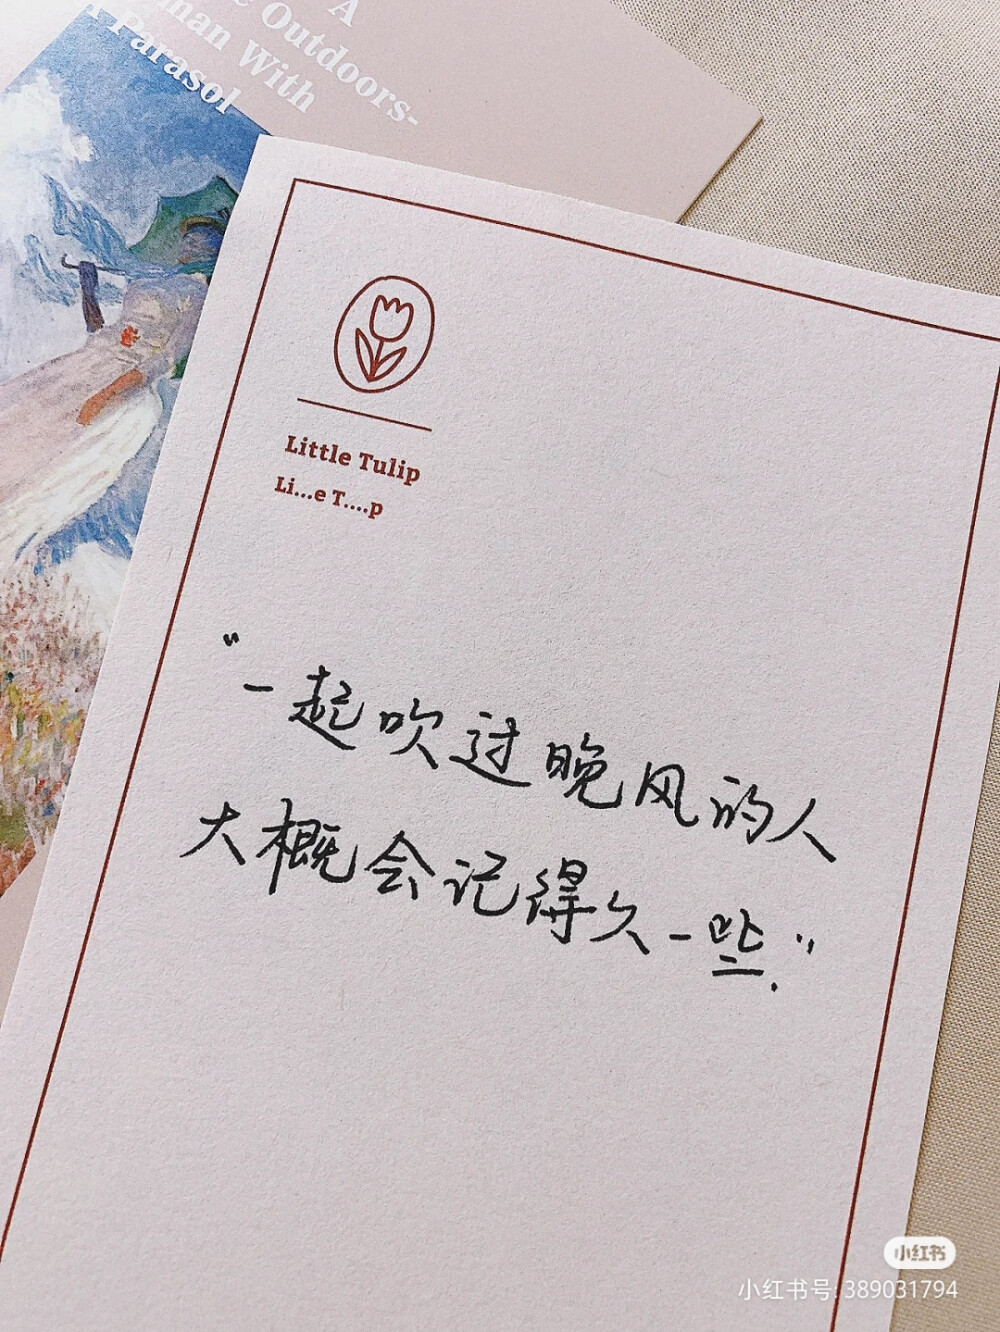 A
Outdoors-
With
Parasol
Little Tulip
Li...e T....p
“一起吹过晚风的人
大概会记得久一些.”
小红书
小红书号: 389031794